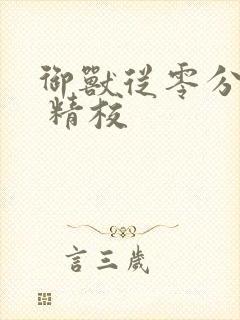 御獸從零分
精板
言三歲